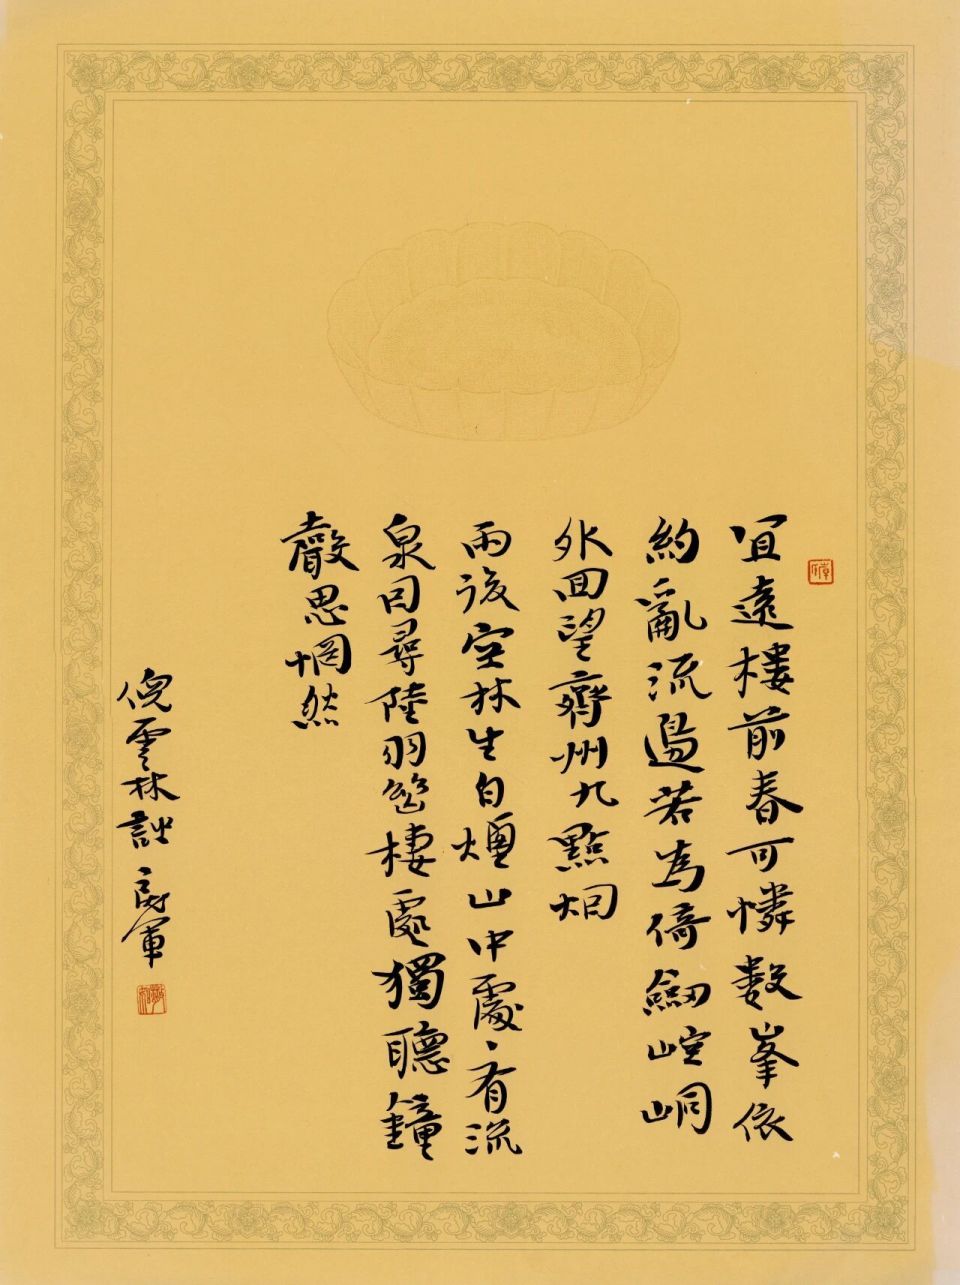 宜遠樓前春可憐數峯依
約亂流邊若爲倚劒崆峒
外回望齊州九點烟
雨後空林生白煙山中處〻有流
泉因尋陸羽幽棲處獨聽鐘
聲思惘然
倪雲林詩
軍